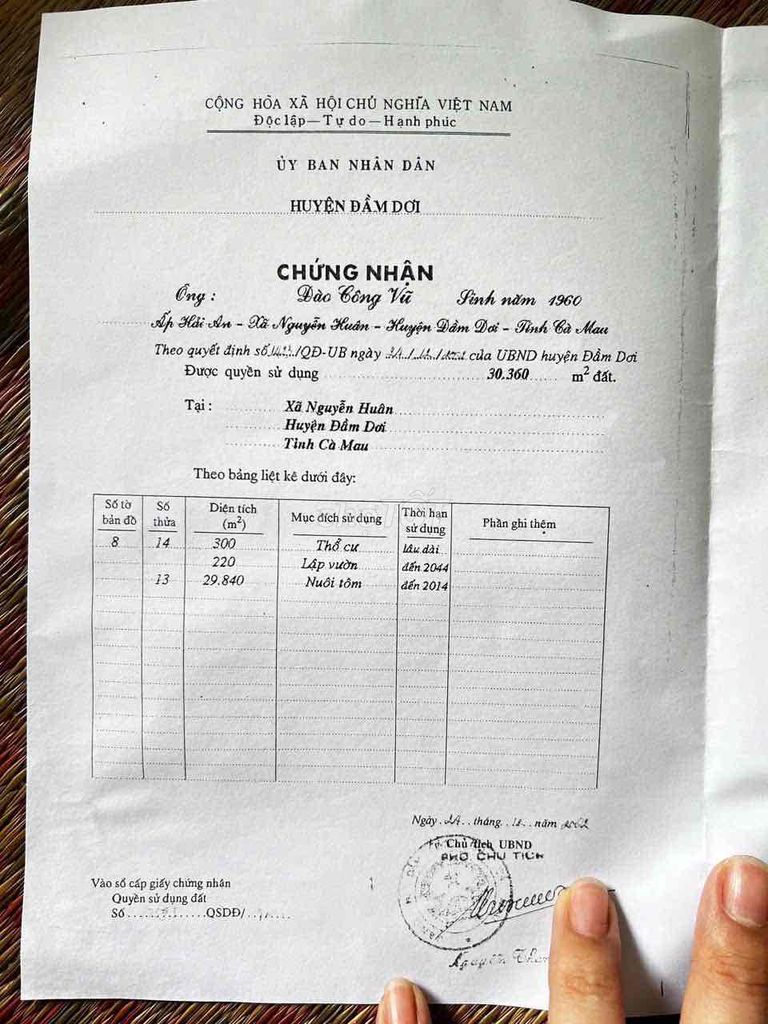 CỘNG HÒA XÃ HỘI CHỦ NGHĨA VIỆT NAM
Độc lập — Tự do — Hạnh phúc
ỦY BAN NHÂN DÂN
HUYỆN ĐẦM DƠI
CHỨNG NHẬN
Ông : Đào Công Vũ Sinh năm 1960
Ấp Hải An - Xã Nguyễn Huân - Huyện Đầm Dơi - Tỉnh Cà Mau
Theo quyết định số /QĐ-UB ngày của UBND huyện Đầm Dơi
Được quyền sử dụng 30.360 m² đất.
Tại : Xã Nguyễn Huân
Huyện Đầm Dơi
Tỉnh Cà Mau
Theo bảng liệt kê dưới đây:
Số tờ bản đồ Số thửa Diện tích (m²) Mục đích sử dụng Thời hạn sử dụng Phần ghi thêm
8 14 300 Thổ cư lâu dài
220 Lập vườn đến 2044
13 29.840 Nuôi tôm đến 2014
Ngày 24 tháng 12 năm 2002
Chủ tịch UBND
PHÓ CHỦ TỊCH
Vào sổ cấp giấy chứng nhận
Quyền sử dụng đất
Số QSDĐ/
Nguyễn